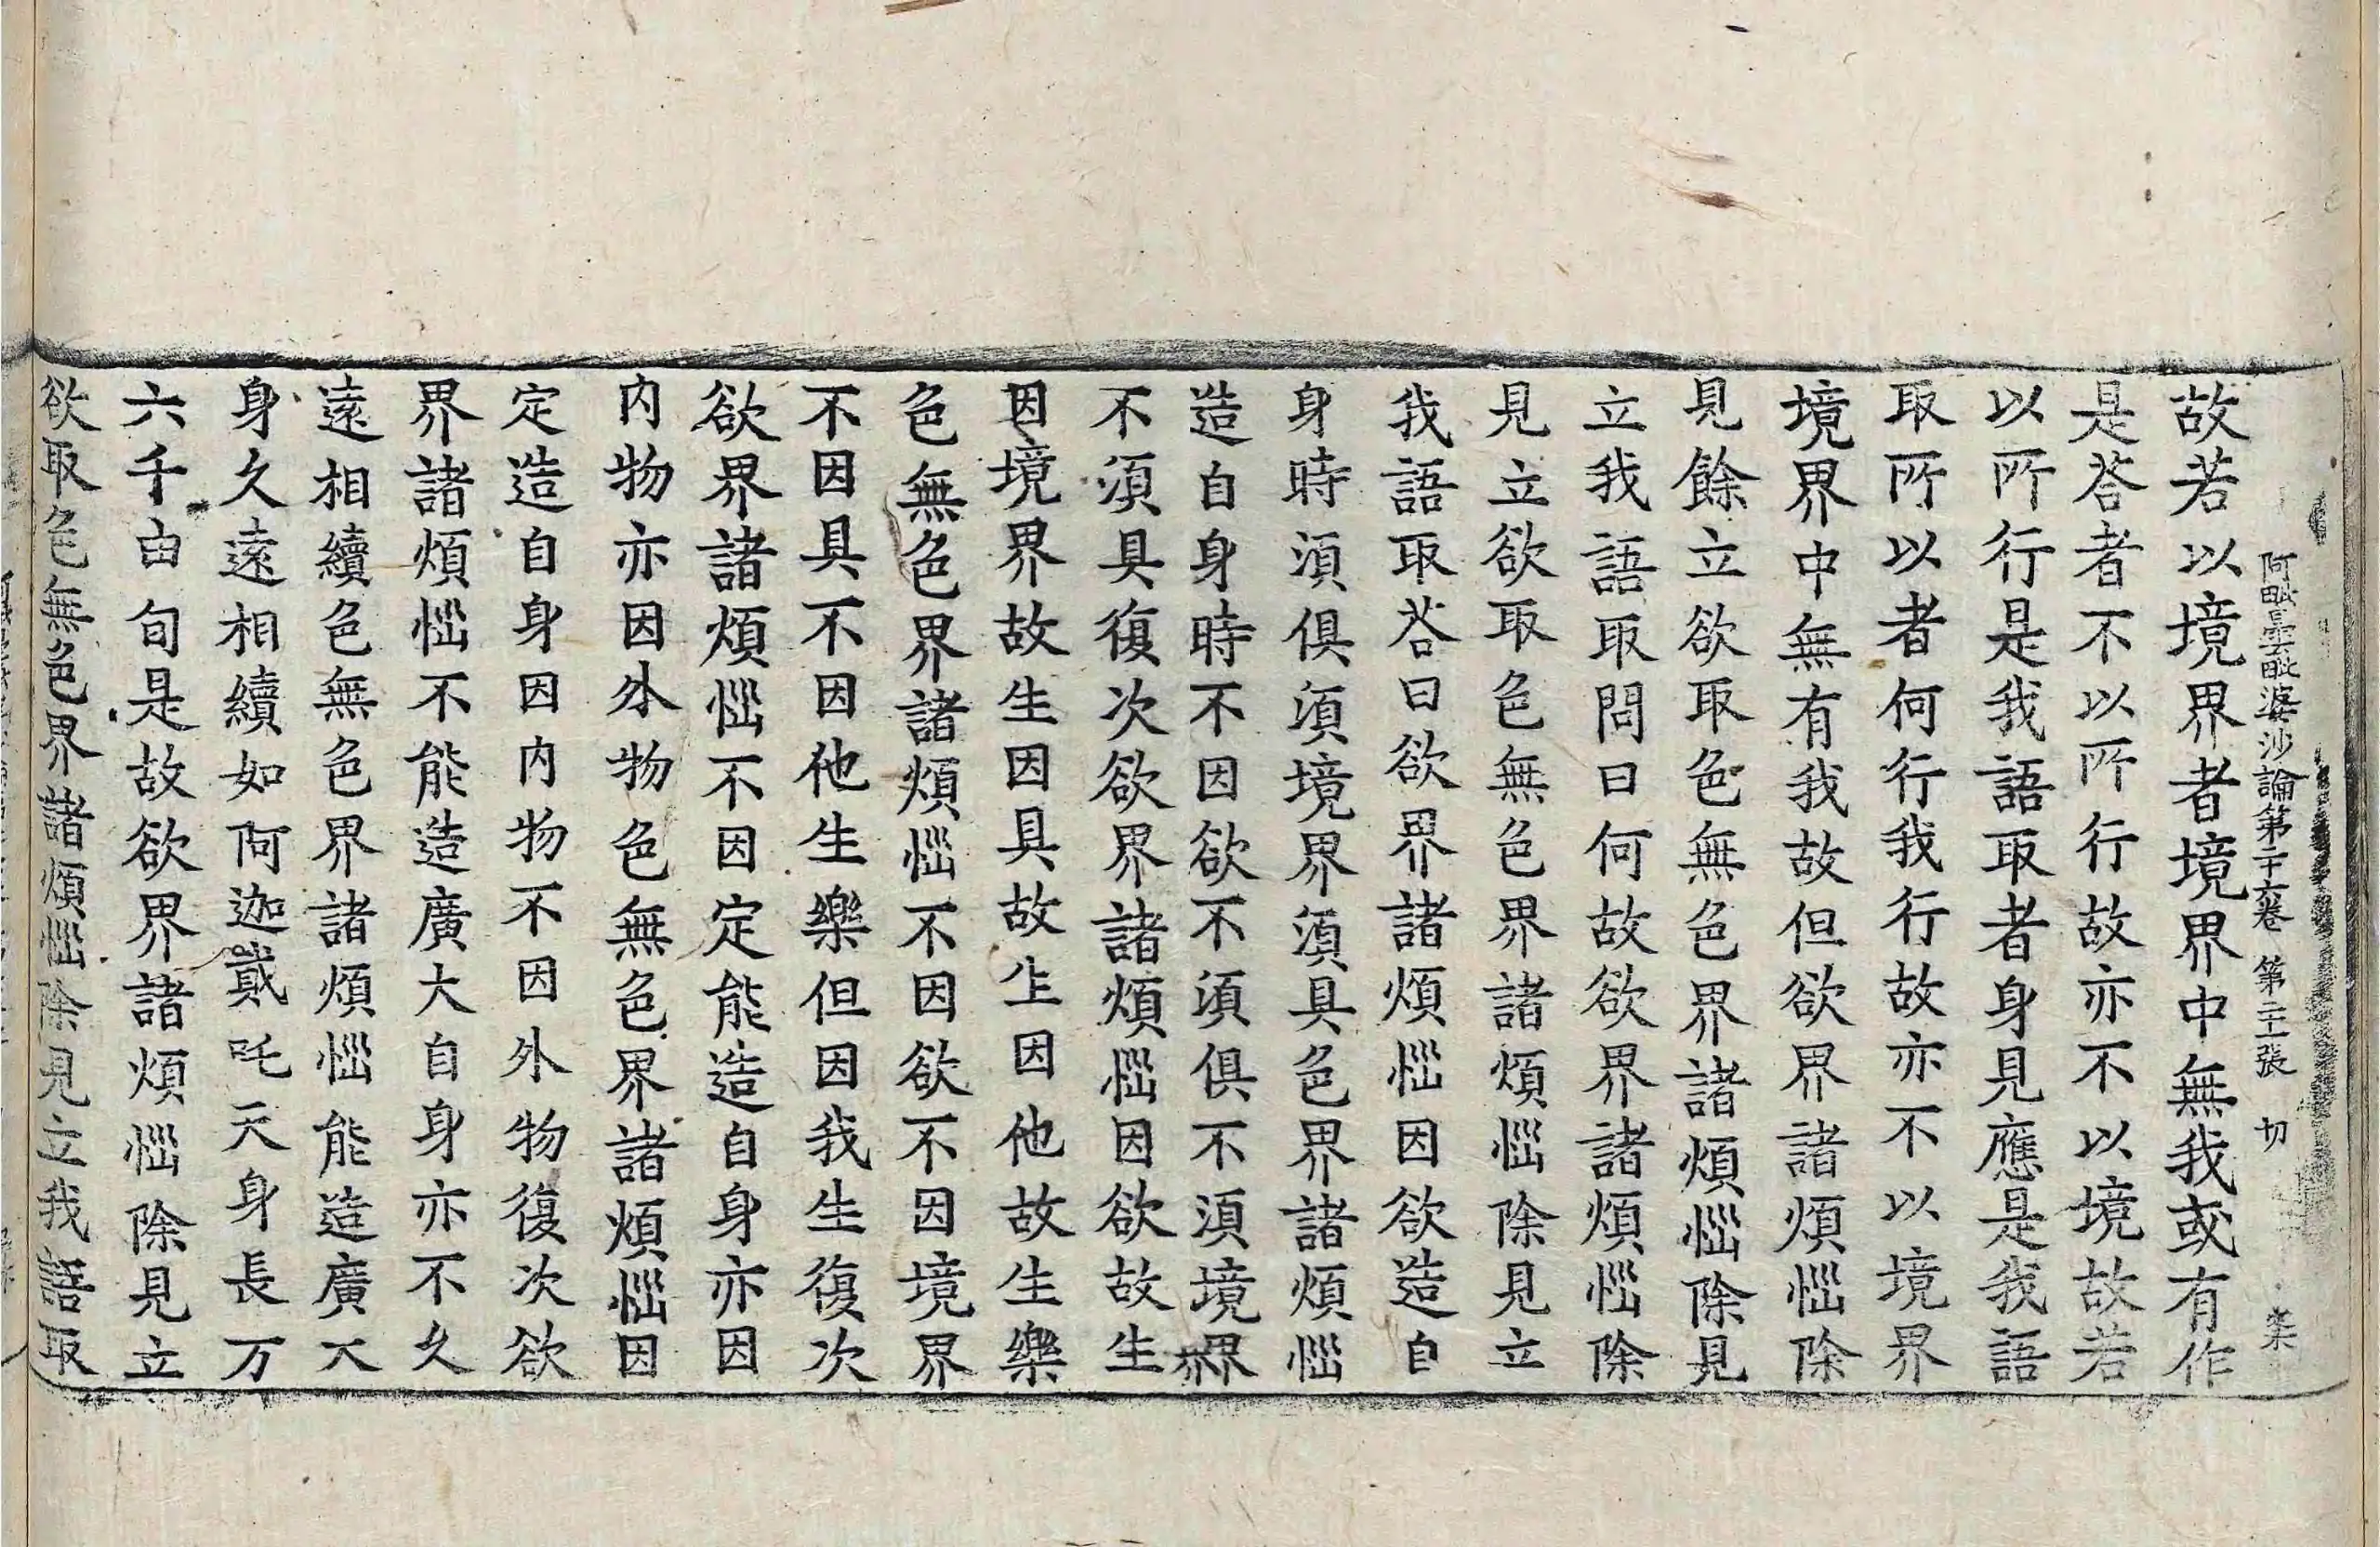 阿毗曇毗婆沙論第二十六卷 第二十一張 切
故若以境界者境界中無我或有作
是荅者不以所行故亦不以境故若
以所行是我語取者身見應是我語
取所以者何行我行故亦不以境界
境界中無有我故但欲界諸煩惱除
見餘立欲取色無色界諸煩惱除見
立我語取問曰何故欲界諸煩惱除
見立欲取色無色界諸煩惱除見立
我語取荅曰欲界諸煩惱因欲造自
身時湏俱湏境界湏具色界諸煩惱
造自身時不因欲不湏俱不湏境界
不湏具復次欲界諸煩惱因欲故生
因境界故生因具故生因他故生樂
色無色界諸煩惱不因欲不因境界
不因具不因他生樂但因我生復次
欲界諸煩惱不因定能造自身亦因
内物亦因外物色無色界諸煩惱因
定造自身因内物不因外物復次欲
界諸煩惱不能造廣大自身亦不久
遠相續色無色界諸煩惱能造廣大
身久遠相續如阿迦貳吒天身長万
六千由旬是故欲界諸煩惱除見立
欲取色無色界諸煩惱除見立我語取